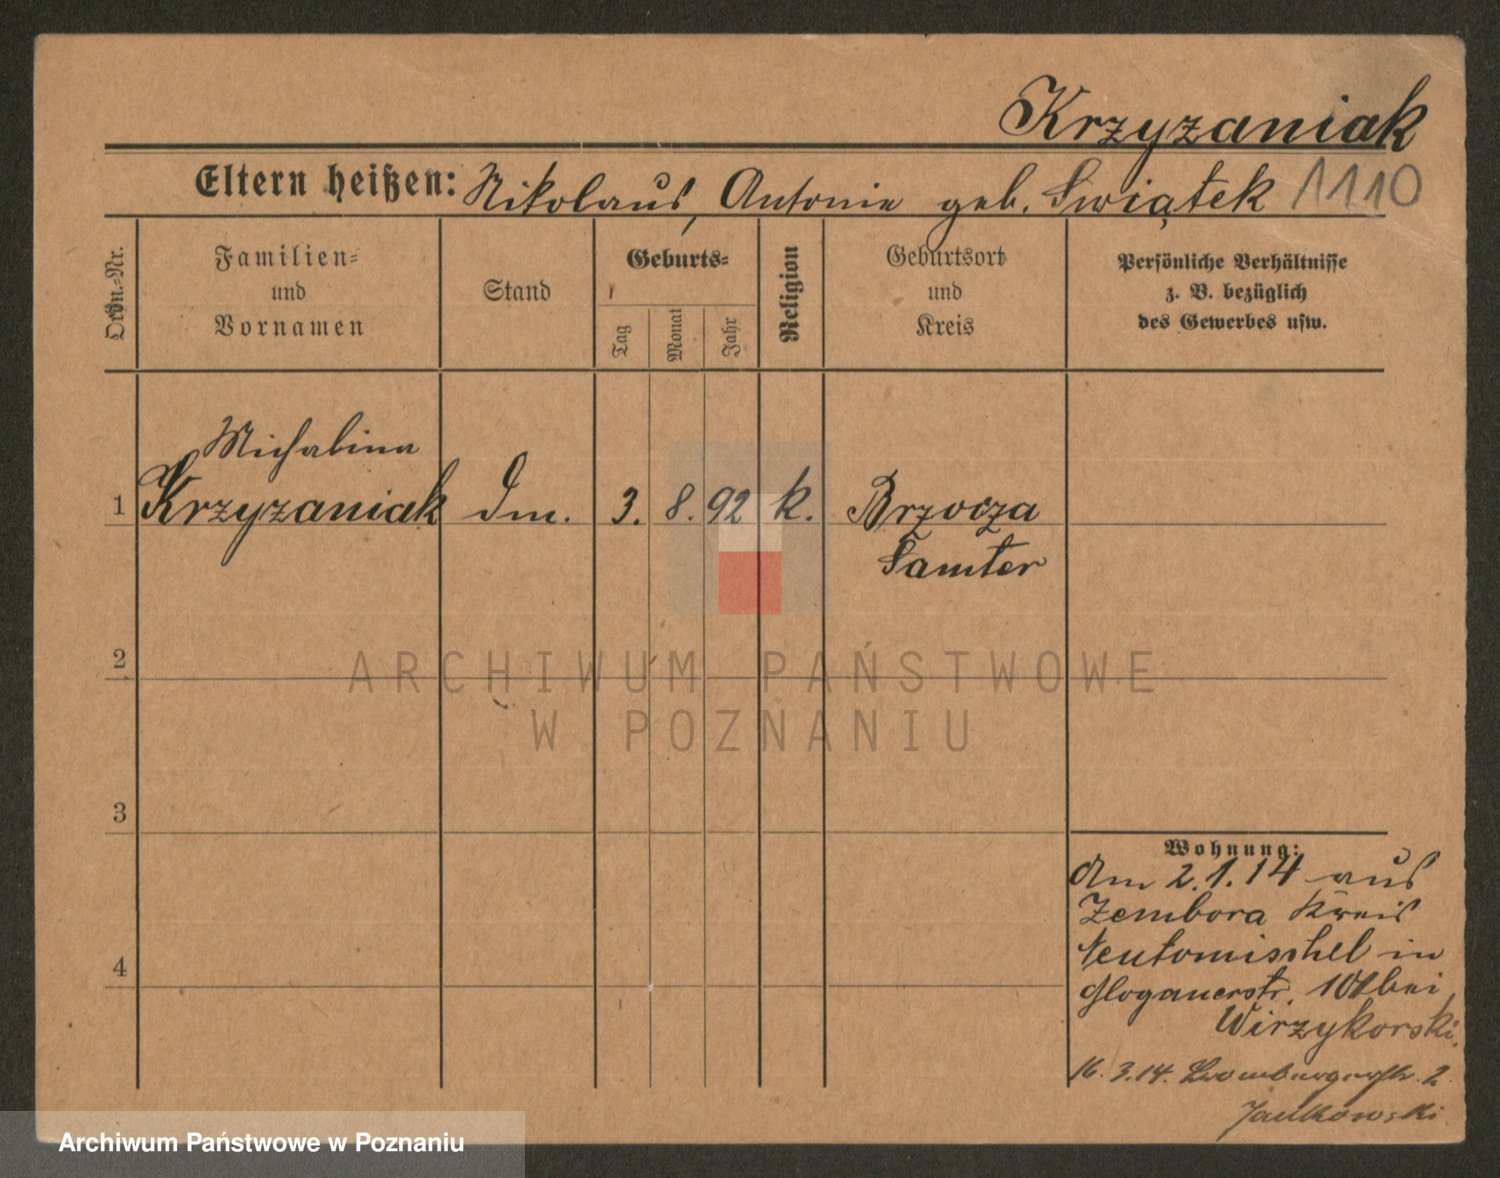 Krzyzaniak
Eltern heißen: Nikolaus, Antonie geb. Swiątek 1110
Ordn.-Nr.
Familien-
und
Vornamen
Stand
Geburts-
Tag
Monat
Jahr
Religion
Geburtsort
und
Kreis
Persönliche Verhältnisse
z. B. bezüglich
des Gewerbes usw.
Michalina
1 Krzyzaniak Dm. 3. 8. 92 k. Brzocza
Samter
2
3
4
Wohnung:
Am 2.1.14 aus
Zembora Kreis
Neutomischel in
Glogauerstr. bei
Wirzykorski,
16.3.14. Brombergerstr. 2
ARCHIWUM PAŃSTWOWE
W POZNANIU
Archiwum Państwowe w Poznaniu